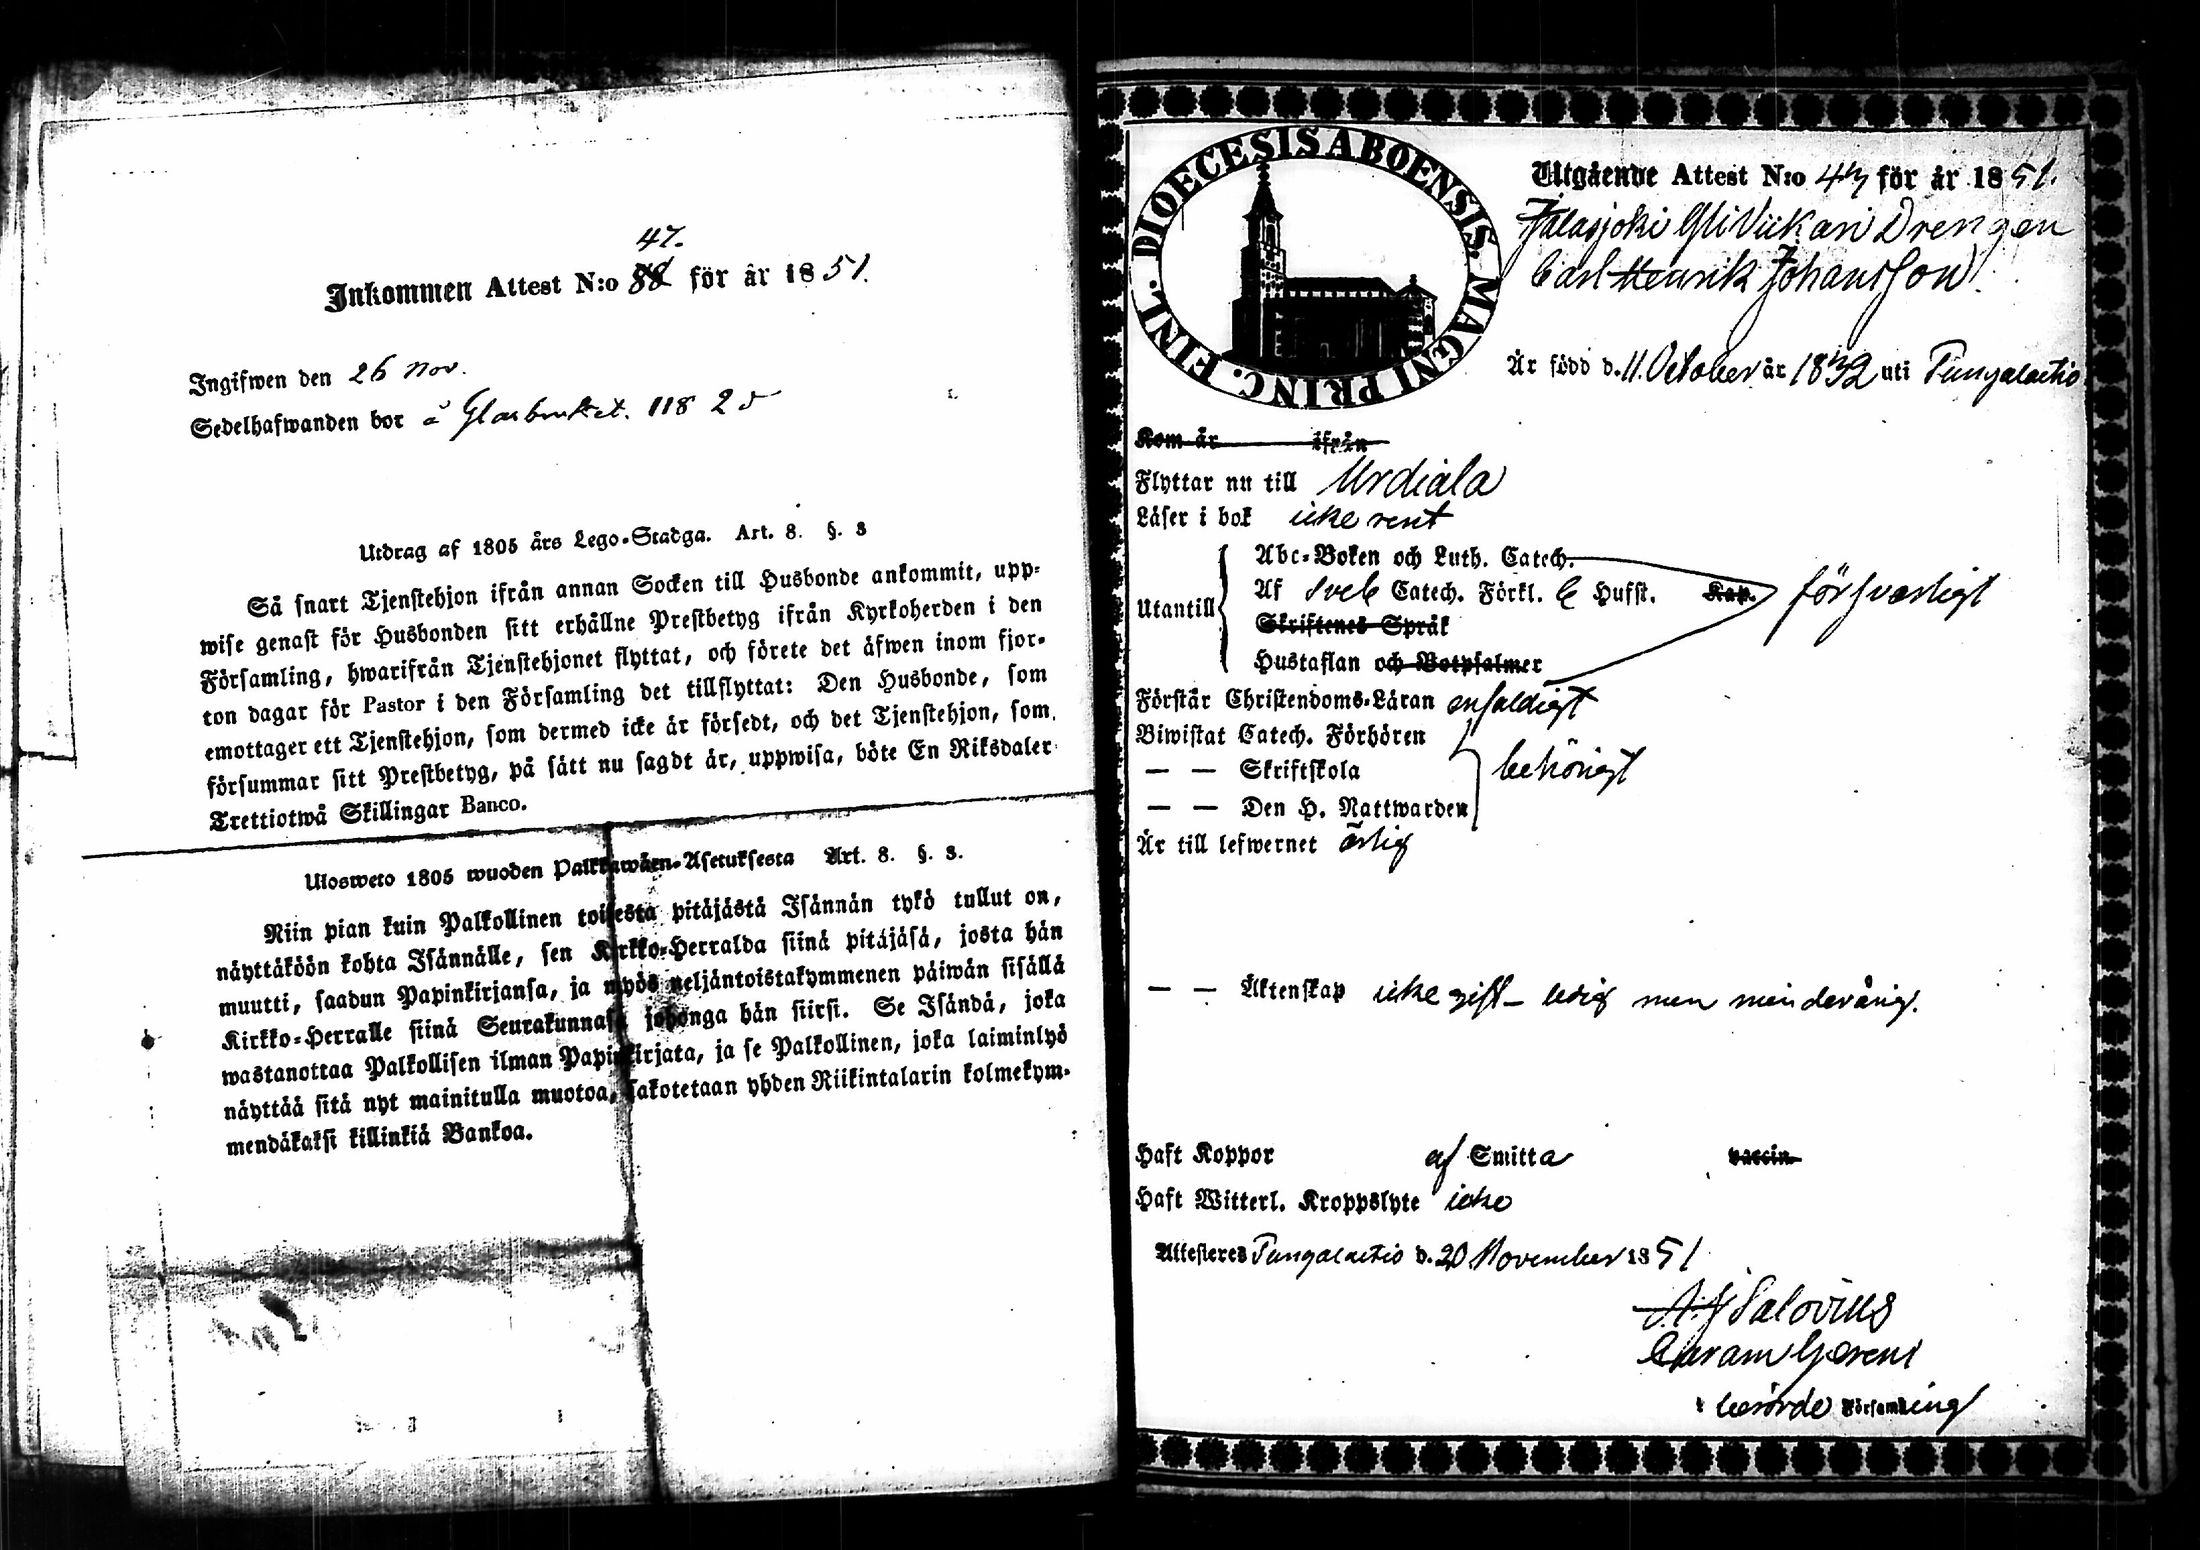 47.
Inkommen Attest N:o 88 för år 1851.
Ingifwen den 26 Nov.
Sedelhafwanden bor å Glasbruket. 118 2
Utdrag af 1805 års Lego-Stadga. Art. 8. §. 3
Så snart Tjenstehjon ifrån annan Socken till Husbonde ankommit, upp-
wise genast för Husbonden sitt erhållne Prestbetyg ifrån Kyrkoherden i den
Församling, hwarifrån Tjenstehjonet flyttat, och förete det äfwen inom fjor-
ton dagar för Pastor i den Församling det tillflyttat: Den Husbonde, som
emottager ett Tjenstehjon, som dermed icke är försedt, och det Tjenstehjon, som
försummar sitt Prestbetyg, på sätt nu sagdt är, uppwisa, böte En Riksdaler
Trettiotwå Skillingar Banco.
Ulosweto 1805 wuoden Palkkawäen-Asetuksesta Art. 8. §. 3.
Niin pian kuin Palkollinen toisesta pitäjästä Isännän tykö tullut on,
näyttäköön kohta Isännälle, sen Kirkko-Herralda siinä pitäjäsä, josta hän
muutti, saadun Papinkirjansa, ja myös neljäntoistakymmenen päiwän sisällä
Kirkko-Herralle siinä Seurakunnasa johonga hän siirsi. Se Isändä, joka
wastanottaa Palkollisen ilman Papinkirjata, ja se Palkollinen, joka laiminlyö
näyttää sitä nyt mainitulla muotoa, sakotetaan yhden Riikintalarin kolmekym-
mendäkaksi killinkiä Bankoa.
DIOECESIS ABOENSIS. MAGNI PRINC. FINL.
Utgående Attest N:o 43 för år 1851.
Jalasjoki Yli Viikari Drengen
Carl Henrik Johansson
Är född d. 11 October år 1832 uti Pungalaitio
Kom år ifrån
Flyttar nu till Urdiala
Läser i bok icke rent
Abc-Boken och Luth. Catech.
Utantill Af Sveb Catech. Förkl. 6 Hufst. Kap. försvarligt
Skriftenes Språk
Hustaflan och Botpsalmer
Förstår Christendoms-Läran enfaldigt
Biwistat Catech. Förhören
— — Skriftskola behörigt
— — Den H. Nattwarden
Är till lefwernet ärlig
— — Äktenskap icke gift – ledig men minderårig.
Haft Koppor af Smitta vaccin
Haft Witterl. Kroppslyte icke
Attesteras Pungalaitio d. 20 November 1851
Salovius
Curam Gerens
i berörde Församling